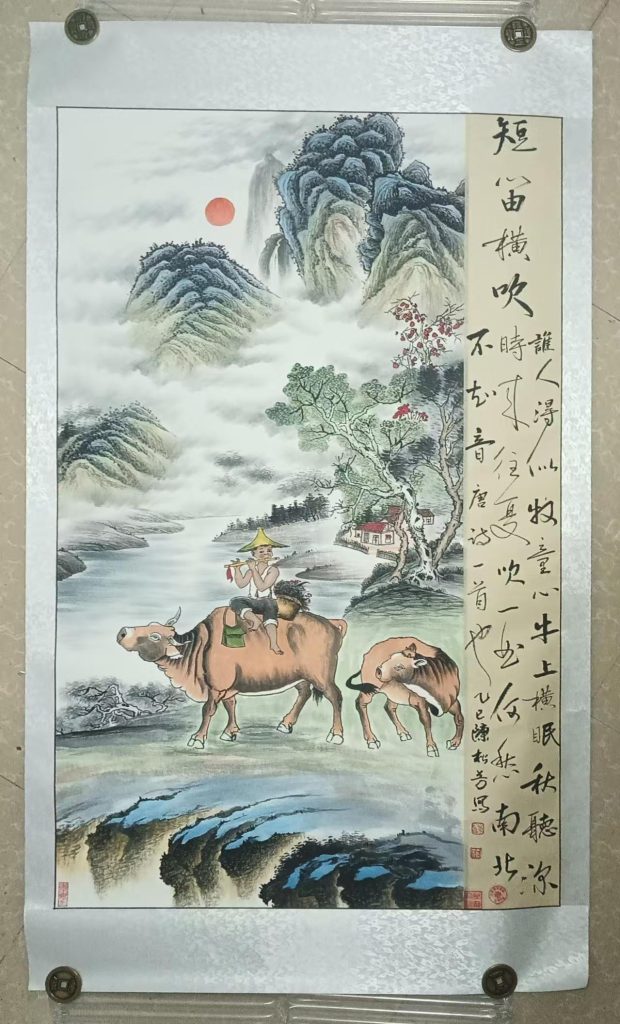 短笛橫吹
誰人得似牧童心牛上橫眠秋聽深
時来往复吹一曲何愁南北
不知音唐诗一首也
乙巳陳松芳寫